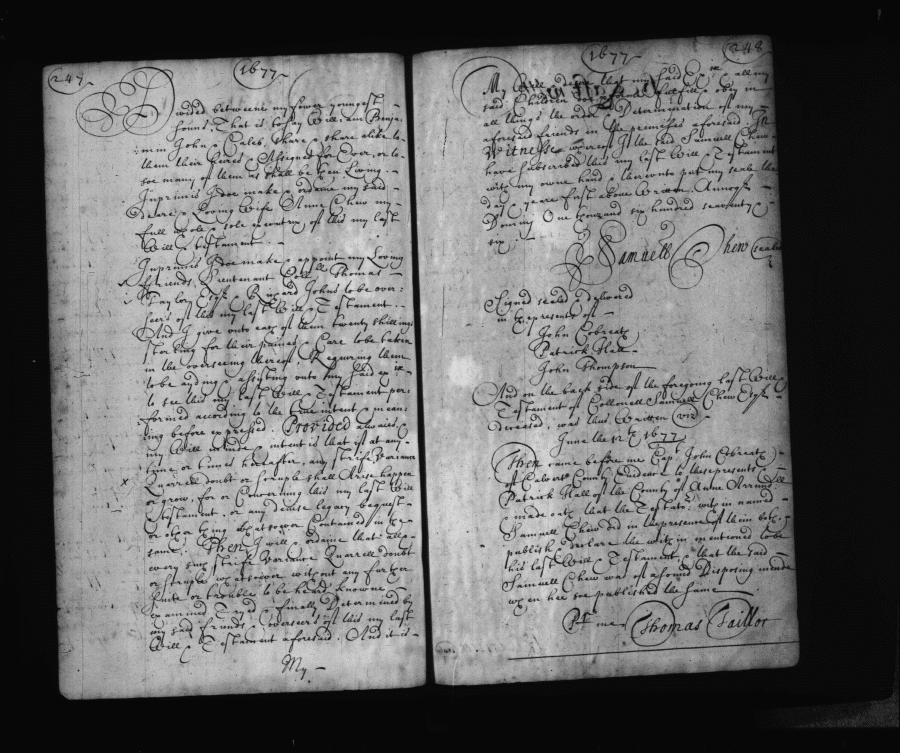 247
1677
Divided betweene my fower youngest
sonns, That is to say William, Benja:
:min John & Caleb, share & share alike to
them their heires & Assignes for Ever, or to
soe many of them as shall be then Living.
Inprimis I doe make & ordaine my said
deare & Loving Wife Anne Chew my
full whole & sole executrix of this my last
Will & testament.
Inprimis I doe make & appoint my Loving
friends, Lieutenant Coll Thomas
Taylor Esqr & Richard Johns to be over:
:seers of this my last Will & Testament.
And I give unto each of them twenty shillings
sterling for their paines & Care to be taken
in the overseeing thereof, Requiring them
to be ayding & assisting unto my said ex
to see this my last Will & Testament per:
:formed according to the true intent & mean:
:ing before expressed. Provided alwaies &
my Will minde & intent is that if at any
time or times hereafter, any strife Variance
Quarrell doubt or scruple shall Arise happen
or grow, for or Concerning this my last Will
& Testament, or any Clause legacy bequest
or other thing whatsoever Contained in the
same. Then I will & ordaine that all &
every such strife Variance Quarrell doubt
or scruple whatsoever without any further
suite or trouble to be heard knowne
examined Tryed & finally Determined by
my said friends & overseers of this my last
Will & Testament aforesaid. And it is
My
1677
248
My Will that my said Ex & all my
said Children doe fulfill & obey in
all things the order & Determination of my
aforesaid friends in the premisses aforesaid In
Witnesse whereof I the said Samuell Chew
have subscribed this my last Will & Testament
with my owne hand & thereunto put my seale the
day & yeare first above Written Annoqr
Domini One thousand six hundred seaventy
six.
Samuell Chew sealed
Signed sealed & delivered
in the presents of
John Cobreath
Patrick Hall
John Thompson
And on the back side of the foregoing last Will &
Testament of Collonell Samuell Chew Esqr
deceased, was thus Written vizt
June the 12th 1677
Then came before me Capt John Cobreath
of Calvert County Evidence to these presents &
Patrick Hall of the County of Anne Arrundll
& made oath that the Testator within named
Samuell Chew did in the presence of them both
publish & declare the within mentioned to be
his last Will & Testament & that the said
Samuell Chew was of a sound & Disposing minde
when hee soe published the same
Pr me Thomas Taillor